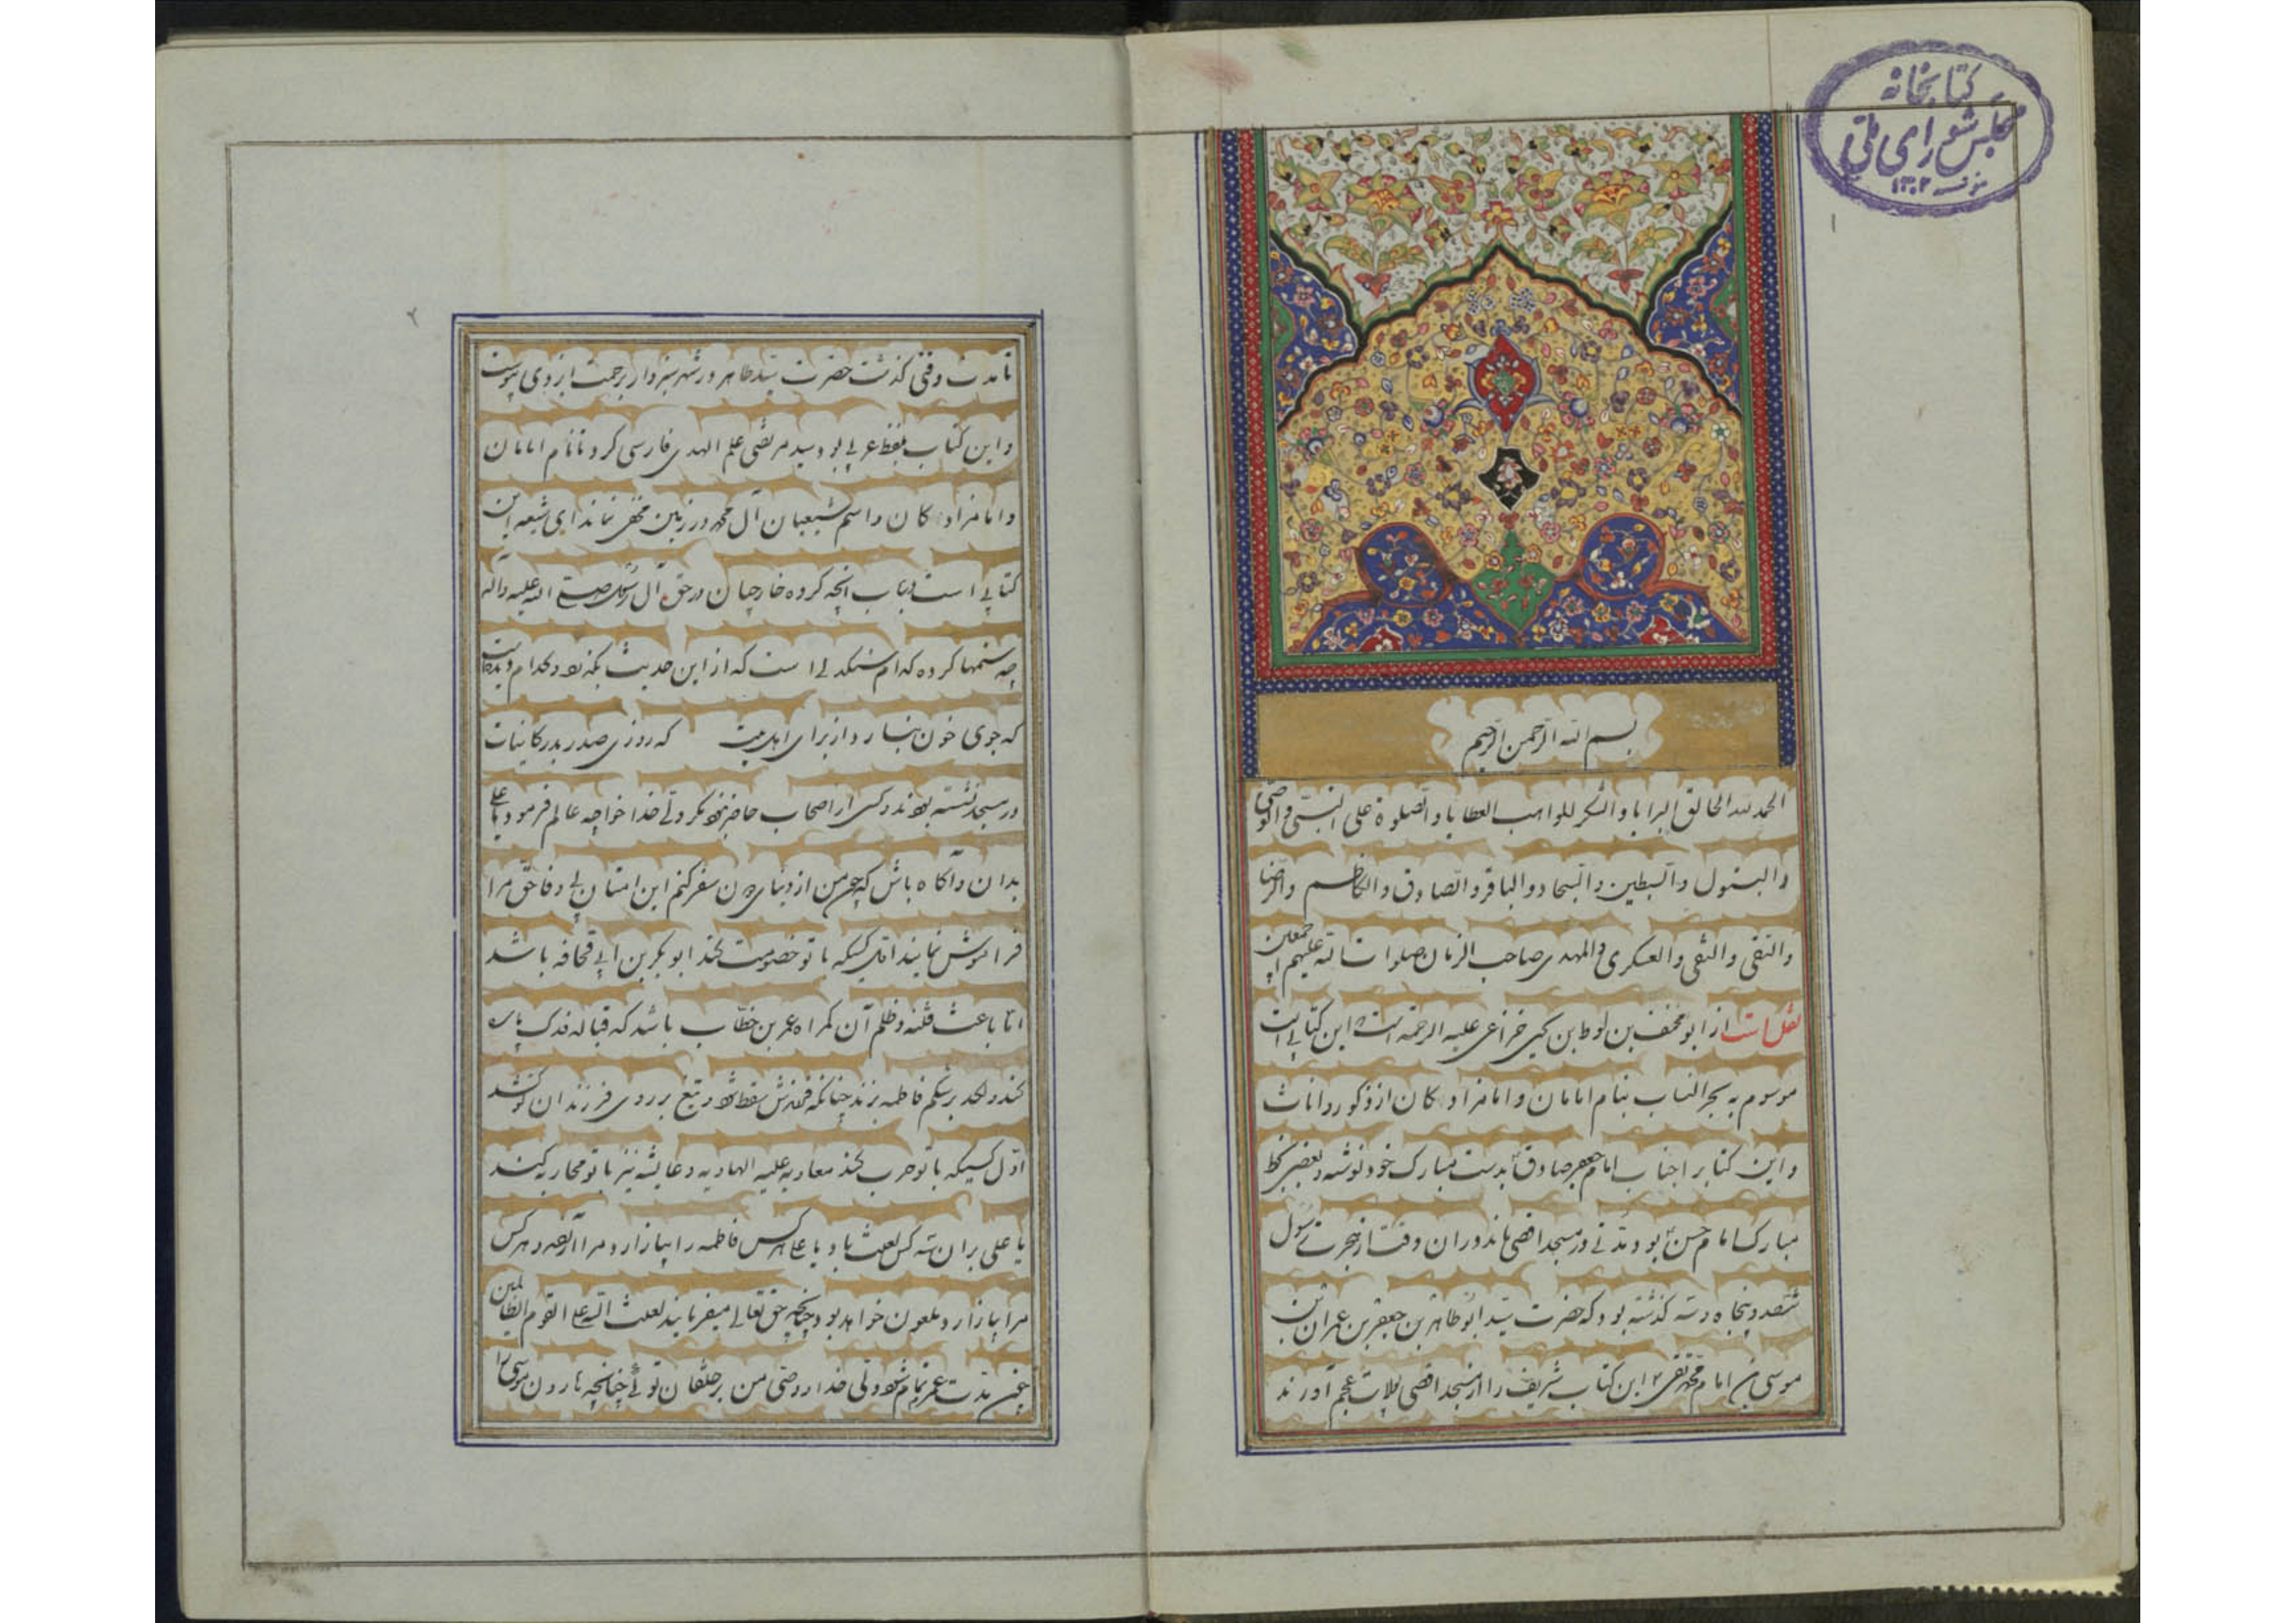 کتابخانه
مجلس شورای ملی
۱۳۰۲
۱
بسم الله الرحمن الرحیم
الحمد لله الخالق البرایا و الشکر للواهب العطایا و الصلوة علی النبی و الوصی
و البتول و السبطین و السجاد و الباقر و الصادق و الکاظم و الرضا
و التقی و النقی و العسکری و المهدی صاحب الزمان صلوات الله علیهم اجمعین
نقل است از ابو مخنف بن لوط بن یحیی خزاعی علیه الرحمة است این کتابی است
موسوم به بحر انساب بنام امامان و امامزاده کان از ذکور و اناث
و این کتابرا جناب امام جعفر صادق بدست مبارک خود نوشته و بعضی بخط
مبارک امام حسن بود مدتی در مسجد اقصی ماند در آن وقت از هجرت رسول
ششصد و پنجاه و سه کذشته بود که حضرت سید ابو طاهر بن جعفر بن عمران بن
موسی بن امام محمد تقی این کتاب شریف را از مسجد اقصی بولایت عجم آورند
۲
تا مدت وقتی کذشت حضرت سید طاهر در شهر سبزوار برحمت ایزدی پیوست
و این کتاب بلفظ عربی بود سید مرتضی علم الهدی فارسی کرد تا نام امامان
و امامزاده کان و اسم شیعیان آل محمد در زمین مخفی نماند ای شیعه این
کتابی است در باب آنچه کروه خارجیان در حق آل رسول صلی الله علیه و آله
چه ستمها کرده کدام سنکدلی است که از این حدیث بکذرد و کدام دیده است
که جوی خون نبارد از برای اهل بیت که روزی صدر بدر کاینات
در مسجد نشسته بودند و کسی از اصحاب حاضر نبود مکر ولی خدا خواجه عالم فرمود یا علی
بدان و آکاه باش که چون من از دنیای دون سفر کنم این امتان بی وفا حق مرا
فراموش نمایند اول کسیکه با تو خصومت کند ابوبکر بن ابی قحافه باشد
اما باعث فتنه و ظلم آن کمراه عمر بن خطاب باشد که قباله فدک پاره
کند و لکد بر شکم فاطمه زند چنانکه فرزندش سقط شود و تیغ بر روی فرزندان تو کشد
اول کسیکه با تو حرب کند معاویه علیه الهاویه و عایشه نیز با تو محاربه کند
یا علی بر آن سه کس لعنت باد یا علی هر کس فاطمه را بیازارد مرا آزرده و هر کس
مرا بیازارد ملعون خواهد بود چنانچه حق تعالی میفرمایند لعنت الله علی القوم الظالمین
چون مدت عمرم تمام شود ولی خدا و وصی من بر خلقان توئی چنانچه هارون موسی